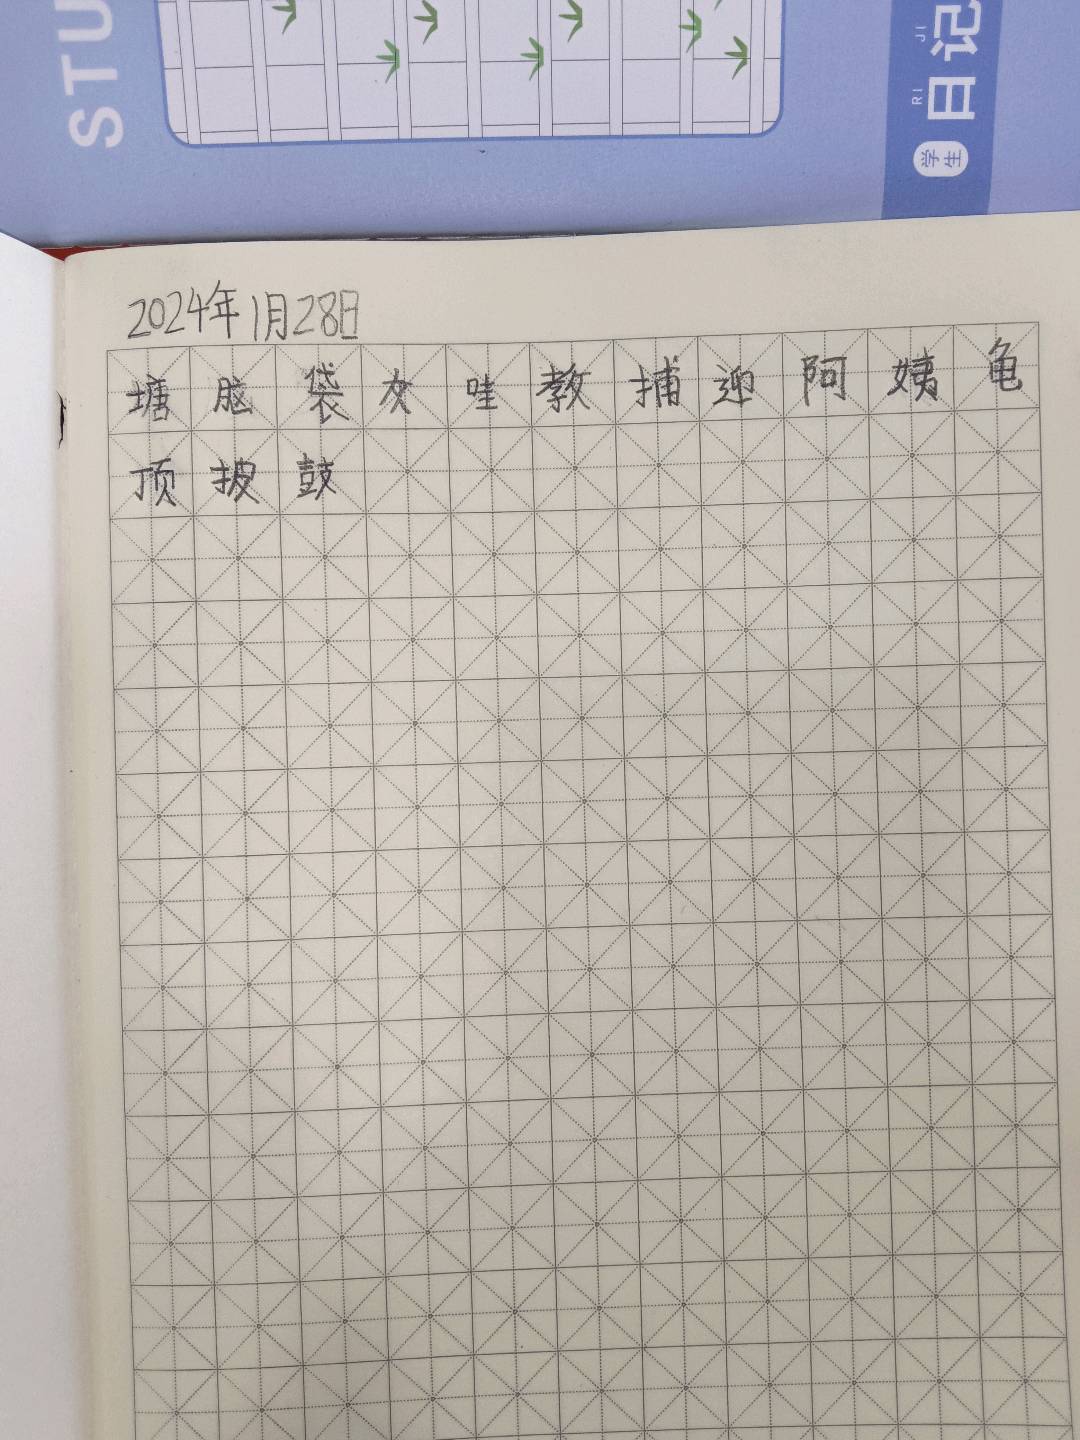 STU
日记
RI JI
学生
2024年1月28日
塘脑袋灰哇教捕迎阿姨龟
顶披鼓